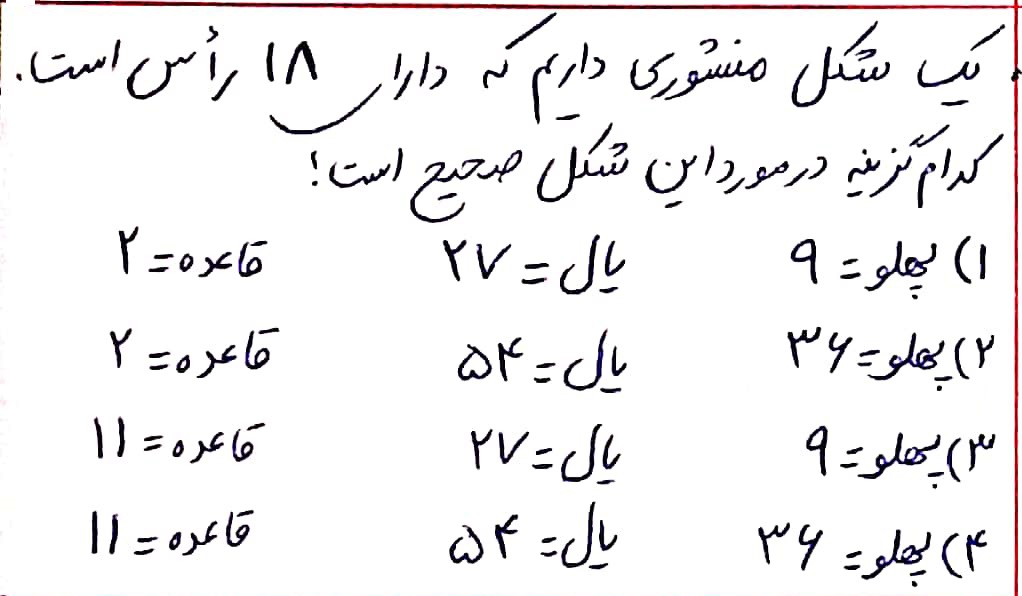 یک شکل منشوری داریم که دارای ۱۸ رأس است.
کدام گزینه در مورد این شکل صحیح است؟
۱) پهلو = ۹ یال = ۲۷ قاعده = ۲
۲) پهلو = ۳۶ یال = ۵۴ قاعده = ۲
۳) پهلو = ۹ یال = ۲۷ قاعده = ۱۱
۴) پهلو = ۳۶ یال = ۵۴ قاعده = ۱۱